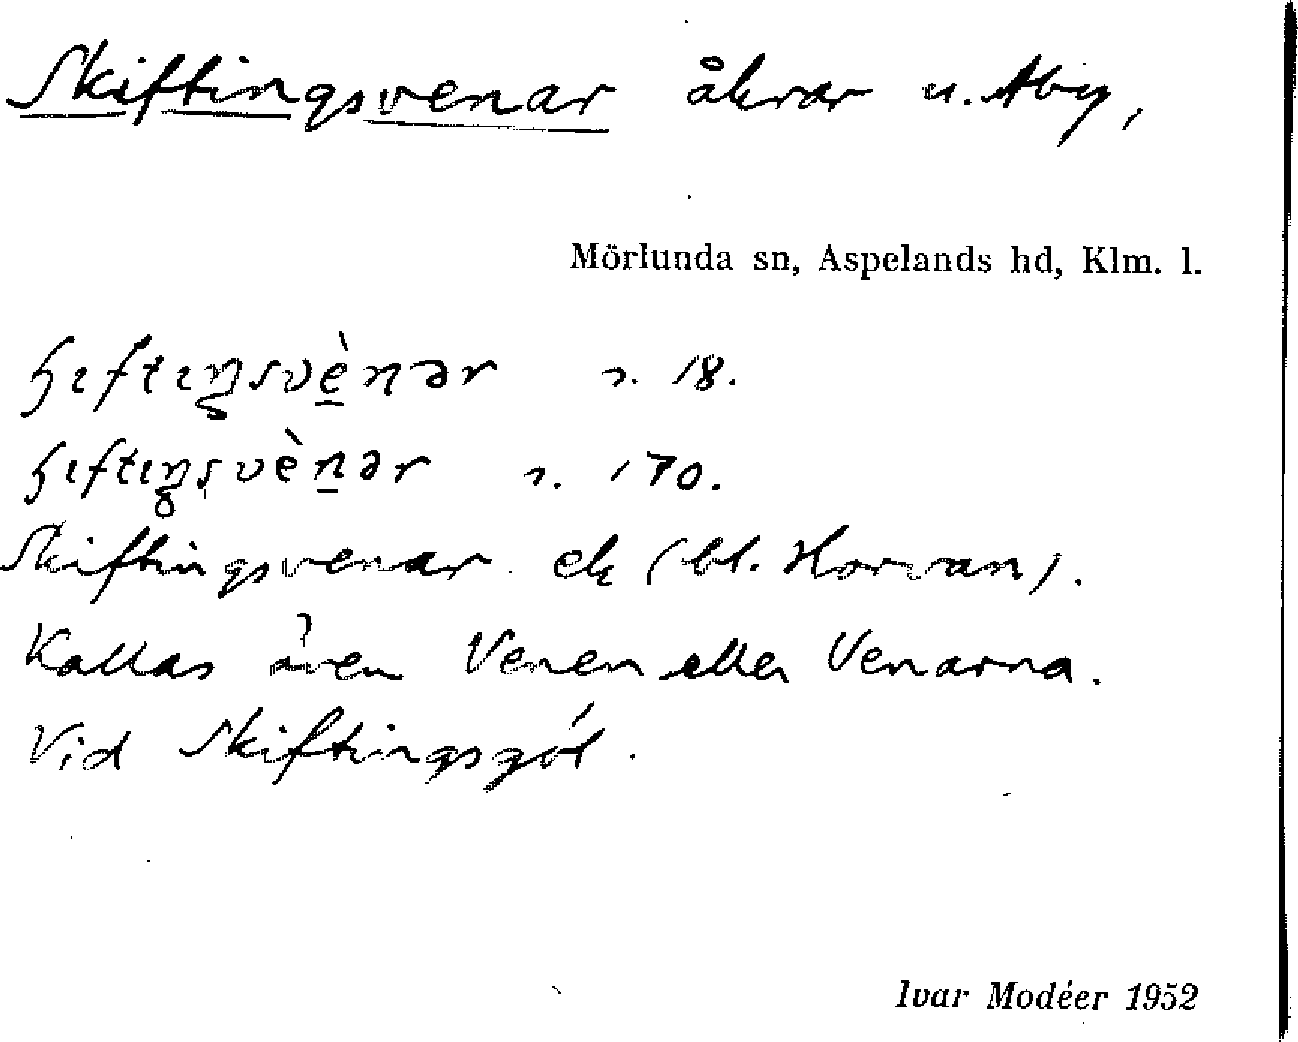 Skiftingsvenar åkrar u. Åby,
Mörlunda sn, Aspelands hd, Klm. l.
s. 18.
s. 170.
Skiftingsvenar ek (bl. Horvan).
Kallas även Venen eller Venarna.
Vid Skiftingsgöl.
Ivar Modéer 1952